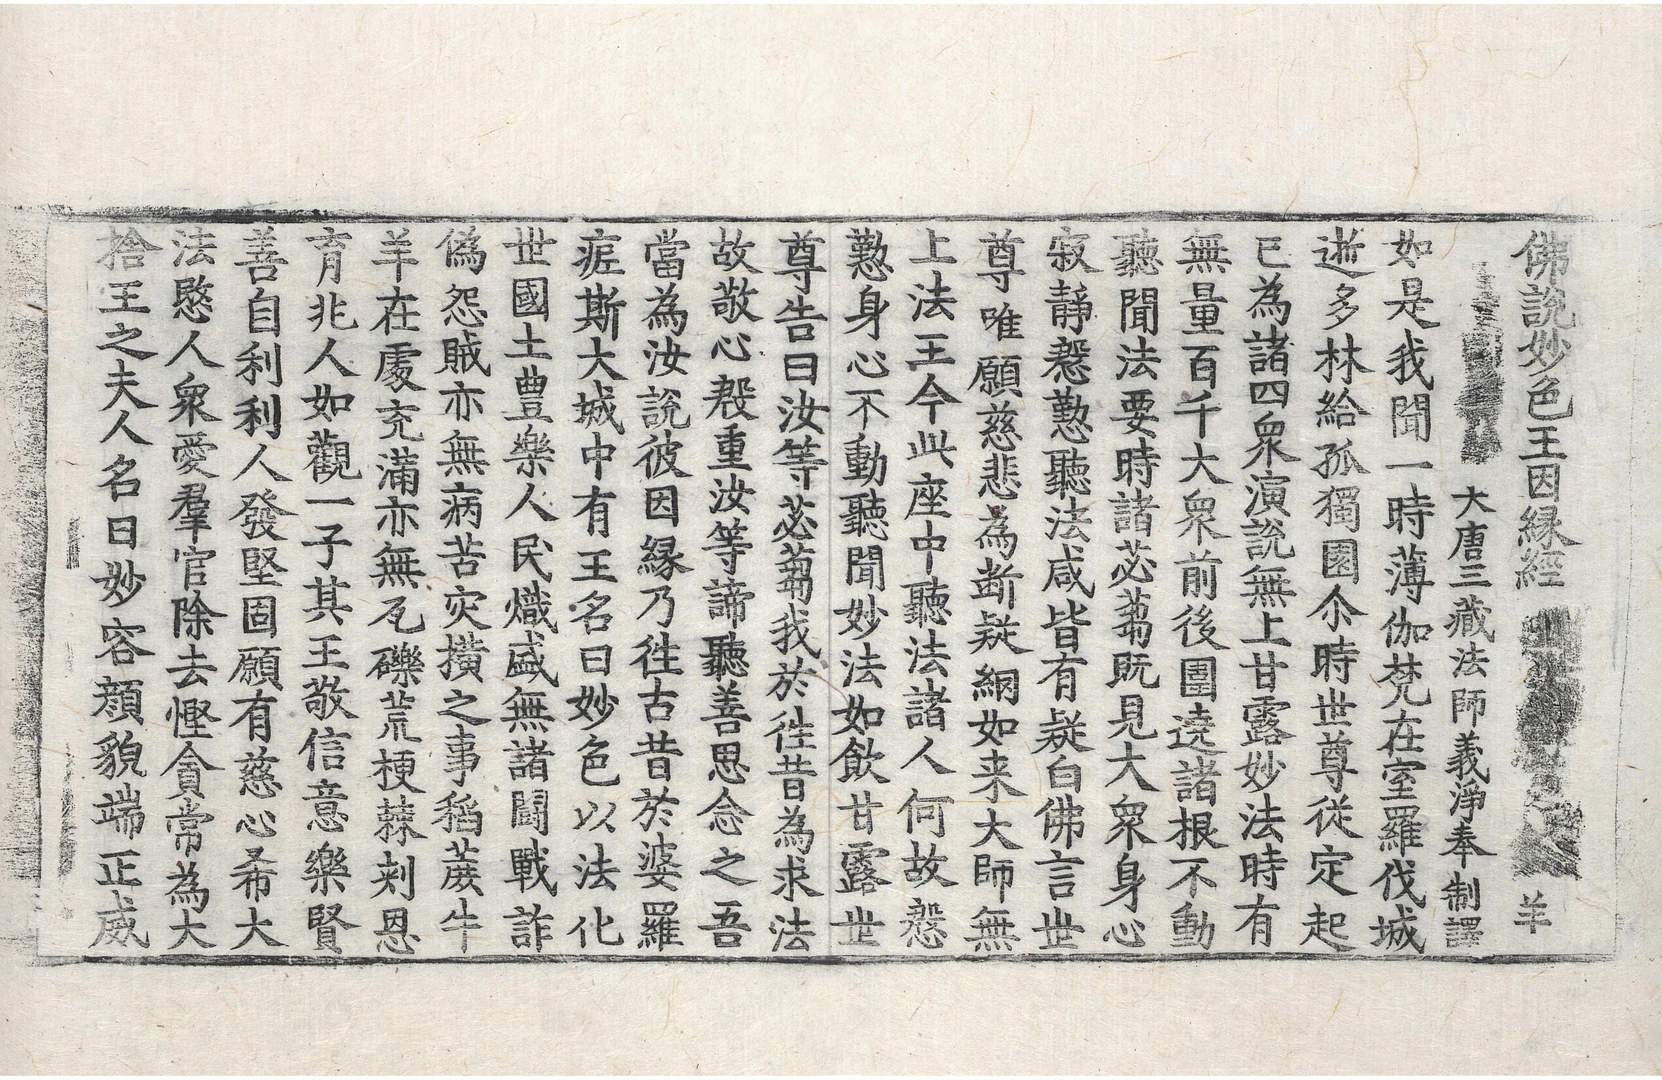 佛說妙色王因緣經 羊
大唐三藏法師義淨奉 制譯
如是我聞一時薄伽梵在室羅伐城
逝多林給孤獨園尒時世尊從定起
已為諸四衆演說無上甘露妙法時有
無量百千大衆前後圍遶諸根不動
聽聞法要時諸苾蒭旣見大衆身心
寂靜慇懃聽法咸皆有疑白佛言世
尊唯願慈悲為斷疑網如来大師無
上法王今此座中聽法諸人何故慇
懃身心不動聽聞妙法如飲甘露世
尊告曰汝等苾蒭我於徃昔為求法
故敬心殷重汝等諦聽善思念之吾
當為汝說彼因緣乃徃古昔於婆羅
痆斯大城中有王名曰妙色以法化
世國土豊樂人民熾盛無諸鬪戰詐
偽怨賊亦無病苦灾撗之事稻蔗牛
羊在處充滿亦無瓦礫荒梗棘刾恩
育兆人如觀一子其王敬信意樂賢
善自利利人發堅固願有慈心希大
法愍人衆愛羣官除去慳貪常為大
捨王之夫人名曰妙容顔貌端正威